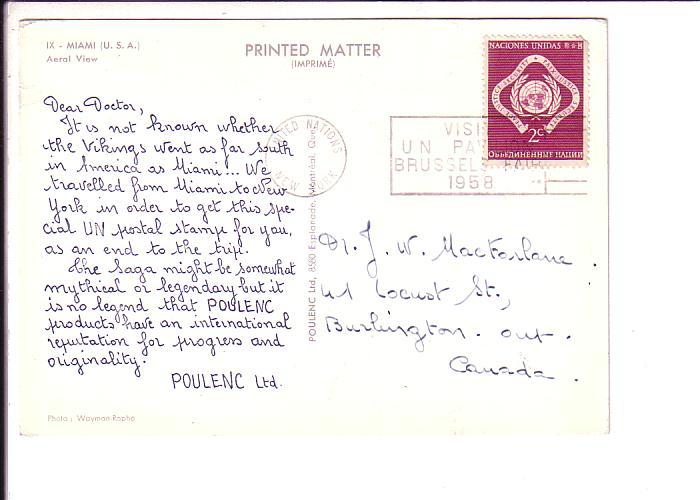 IX - MIAMI (U. S. A.)
Aerial View
PRINTED MATTER
(IMPRIMÉ)
Dear Doctor,
It is not known whether
the Vikings went as far south
in America as Miami... We
travelled from Miami to New
York in order to get this spe-
cial UN postal stamp for you,
as an end to the trip.
The Saga might be somewhat
mythical or legendary but it
is no legend that POULENC
products have an international
reputation for progress and
originality.
POULENC Ltd.
Photo : Wayman-Rapho
POULENC Ltd, 8580 Esplanade, Montréal, Que.
UNITED NATIONS
NEW YORK
VISIT
UN PAV
BRUSSELS FAIR
1958
NACIONES UNIDAS
2c
ОБЪЕДИНЕННЫЕ НАЦИИ
Dr. J. W. MacFarlane.
41 Locust St.,
Burlington. Ont.
Canada.